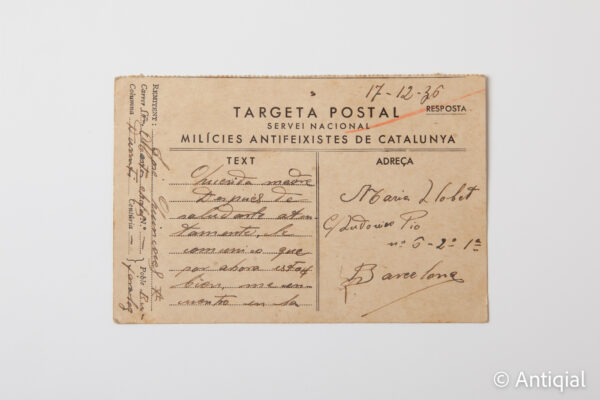 17-12-36
TARGETA POSTAL
RESPOSTA
SERVEI NACIONAL
MILÍCIES ANTIFEIXISTES DE CATALUNYA
REMITENT:
Carrer
Columna Durruti Centúria — Poble
TEXT
Querida madre
Después de
saludarte aten
tamente, le
comunico que
por ahora estoy
bien, me en
cuentro en la
ADREÇA
Maria Llobet
C/ Ludovico Pio
nº 6-2º 1ª
Barcelona
© Antiqial